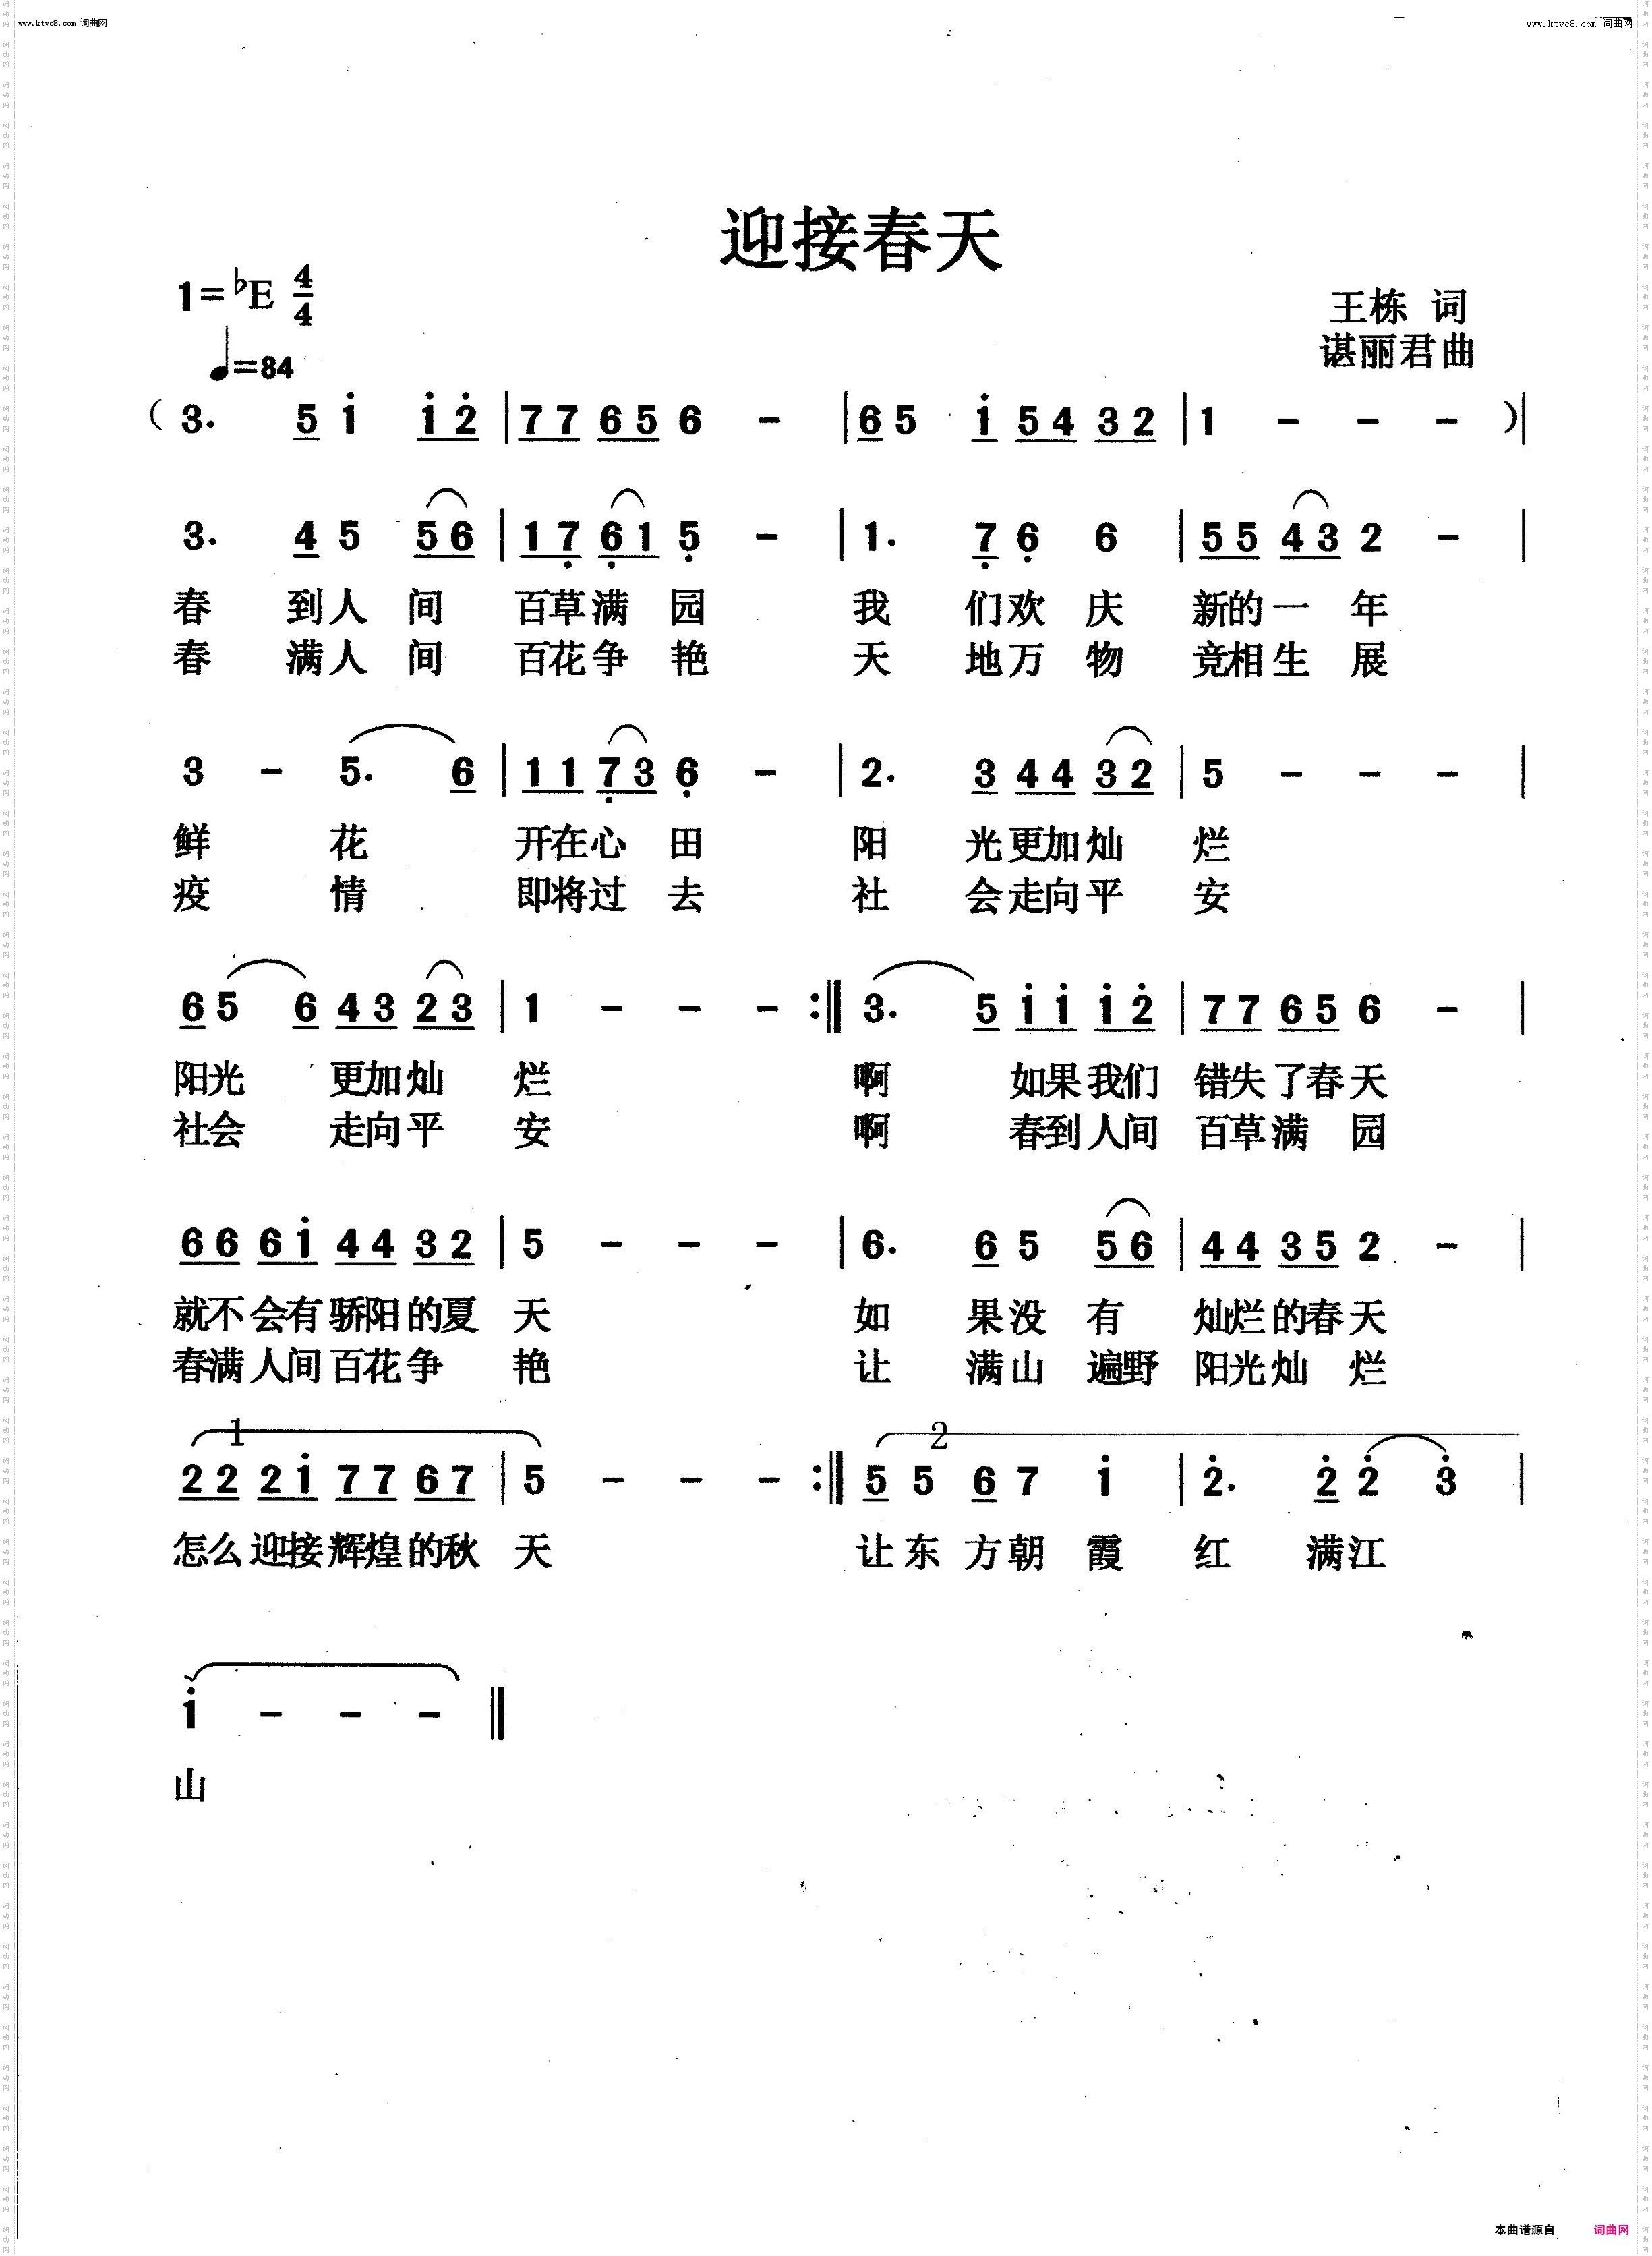 www.ktvc8.com 词曲网
www.ktvc8.com 词曲网
迎接春天
1=♭E 4/4
王栋 词
♩=84
谌丽君曲
（ 3. 5 i̇ i̇ 2̇ | 7 7 6 5 6 － | 6 5 i̇ 5 4 3 2 | 1 － － － ）|
3. 4 5 5 6 | 1 7̣ 6̣ 1 5̣ － | 1. 7̣ 6̣ 6 | 5 5 4 3 2 － |
春 到人 间 百草满 园 我 们欢 庆 新的一 年
春 满人 间 百花争 艳 天 地万 物 竞相生 展
3 － 5. 6 | 1 1 7̣ 3 6̣ － | 2. 3 4 4 3 2 | 5 － － － |
鲜 花 开在心 田 阳 光更加灿 烂
疫 情 即将过 去 社 会走向平 安
6 5 6 4 3 2 3 | 1 － － － :‖ 3. 5 i̇ i̇ i̇ 2̇ | 7 7 6 5 6 － |
阳光 更加灿 烂 啊 如果我们 错失了春天
社会 走向平 安 啊 春到人间 百草满 园
6 6 6 i̇ 4 4 3 2 | 5 － － － | 6. 6 5 5 6 | 4 4 3 5 2 － |
就不会有骄阳的夏 天 如 果没 有 灿烂的春天
春满人间百花争 艳 让 满山 遍野 阳光灿 烂
1 2
2 2 2 i̇ 7 7 6 7 | 5 － － － :‖ 5 5 6 7 i̇ | 2̇. 2̇ 2̇ 3̇ |
怎么迎接辉煌的秋 天 让东 方朝 霞 红 满江
i̇ － － － ‖
山
本曲谱源自 词曲网